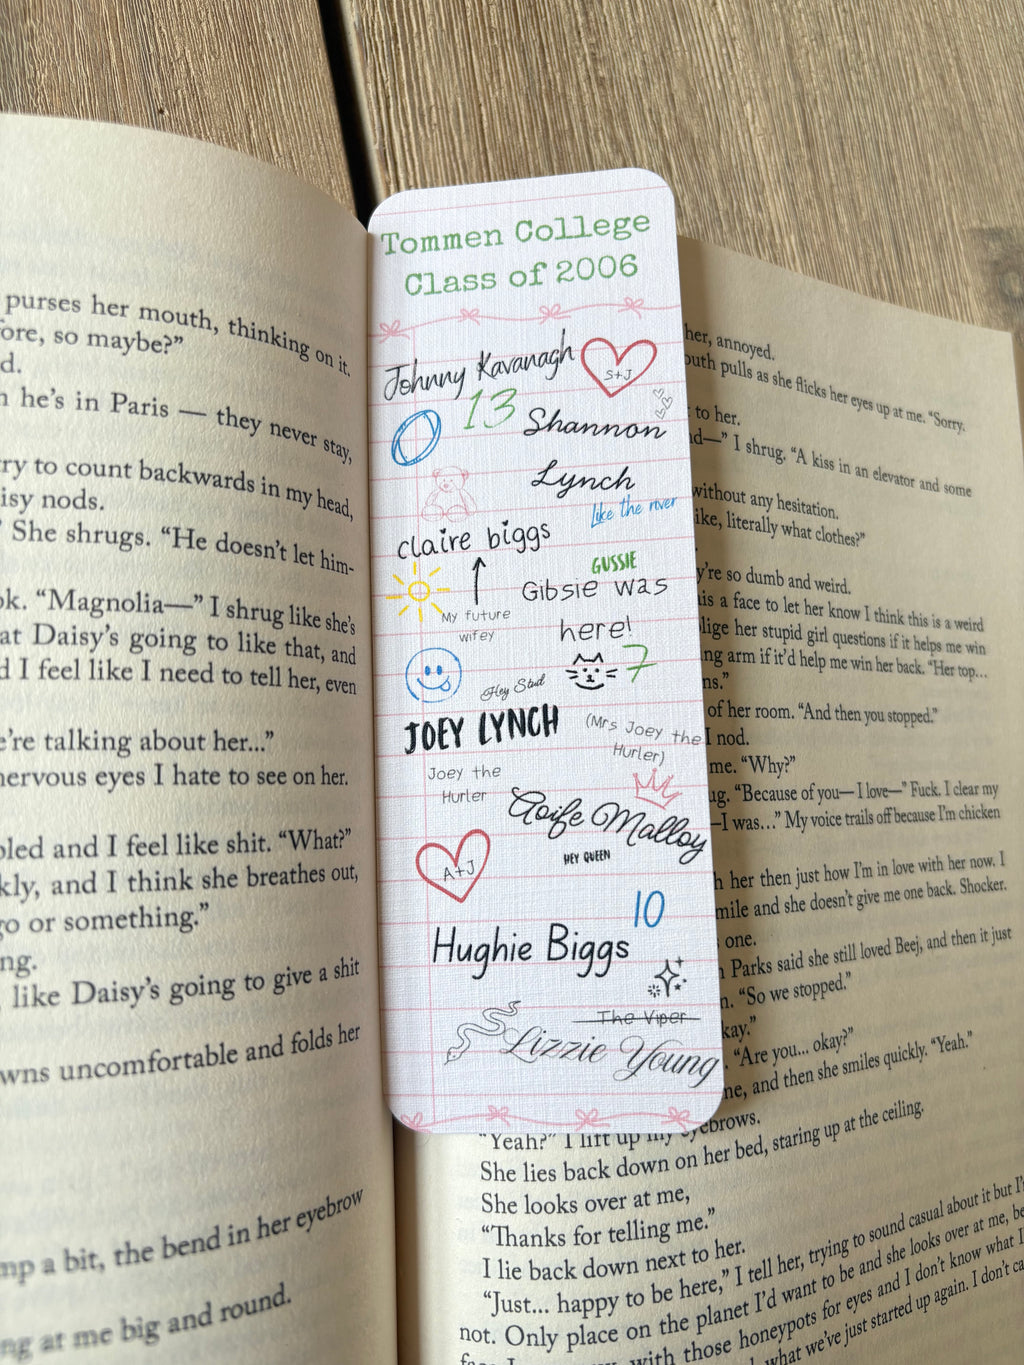 purses her mouth, thinking on it.
so maybe?”
he's in Paris — they never stay,
to count backwards in my head,
nods.
She shrugs. “He doesn't let him-
“Magnolia—” I shrug like she's
Daisy's going to like that, and
I feel like I need to tell her, even
talking about her...”
nervous eyes I hate to see on her.
and I feel like shit. “What?”
and I think she breathes out,
or something.”
like Daisy's going to give a shit
uncomfortable and folds her
a bit, the bend in her eyebrow
at me big and round.
Tommen College
Class of 2006
Johnny Kavanagh
S+J
13
Shannon
Lynch
Like the river
claire biggs
GUSSIE
Gibsie was
here!
My future
wifey
7
Hey Stud
JOEY LYNCH
(Mrs Joey the
Hurler)
Joey the
Hurler
Aoife Malloy
HEY QUEEN
A+J
10
Hughie Biggs
The Viper
Lizzie Young
her, annoyed.
pulls as she flicks her eyes up at me. “Sorry.
to her.
I shrug. “A kiss in an elevator and some
without any hesitation.
literally what clothes?”
so dumb and weird.
is a face to let her know I think this is a weird
her stupid girl questions if it helps me win
arm if it'd help me win her back. “Her top...
of her room. “And then you stopped.”
I nod.
me. “Why?”
“Because of you—I love—” Fuck. I clear my
—I was...” My voice trails off because I'm chicken
her then just how I'm in love with her now. I
and she doesn't give me one back. Shocker.
one.
Parks said she still loved Beej, and then it just
“So we stopped.”
“Are you... okay?”
and then she smiles quickly. “Yeah.”
“Yeah?” I lift up my eyebrows.
She lies back down on her bed, staring up at the ceiling.
She looks over at me,
“Thanks for telling me.”
I lie back down next to her.
“Just... happy to be here,” I tell her, trying to sound casual about it but
not. Only place on the planet I'd want to be and she looks over at me,
with those honeypots for eyes and I don't know what
what we've just started up again. I don't